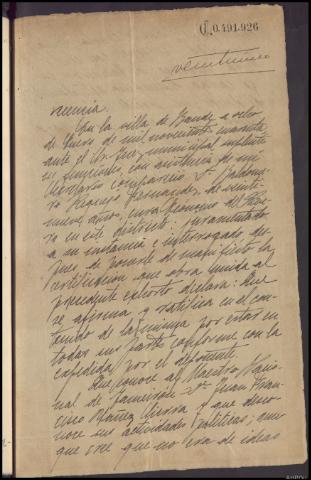 C 0.491.926
veintiuno
recencia.
En la villa de Bande a ocho
de Enero de mil novecientos cuarenta
ante el Sr. Juez municipal suplente
en funciones, con asistencia de mi
Secretario compareció D. Baldome-
ro Requejo Fernandez, de veinti-
nueve años, cura
en este distrito; juramentado
a su instancia e interrogado des-
pues de ponerle de manifiesto la
certificación que obra unida al
precedente exhorto declara: Que
se afirma y ratifica en el con-
tenido de la misma por estar en
todas sus partes conforme con la
expedida por el deponente.
Que conoce al Maestro Nacio-
nal de D. Juan Fran-
cisco Yañez y que desco-
noce sus actividades políticas; aun-
que cree que no era de ideas